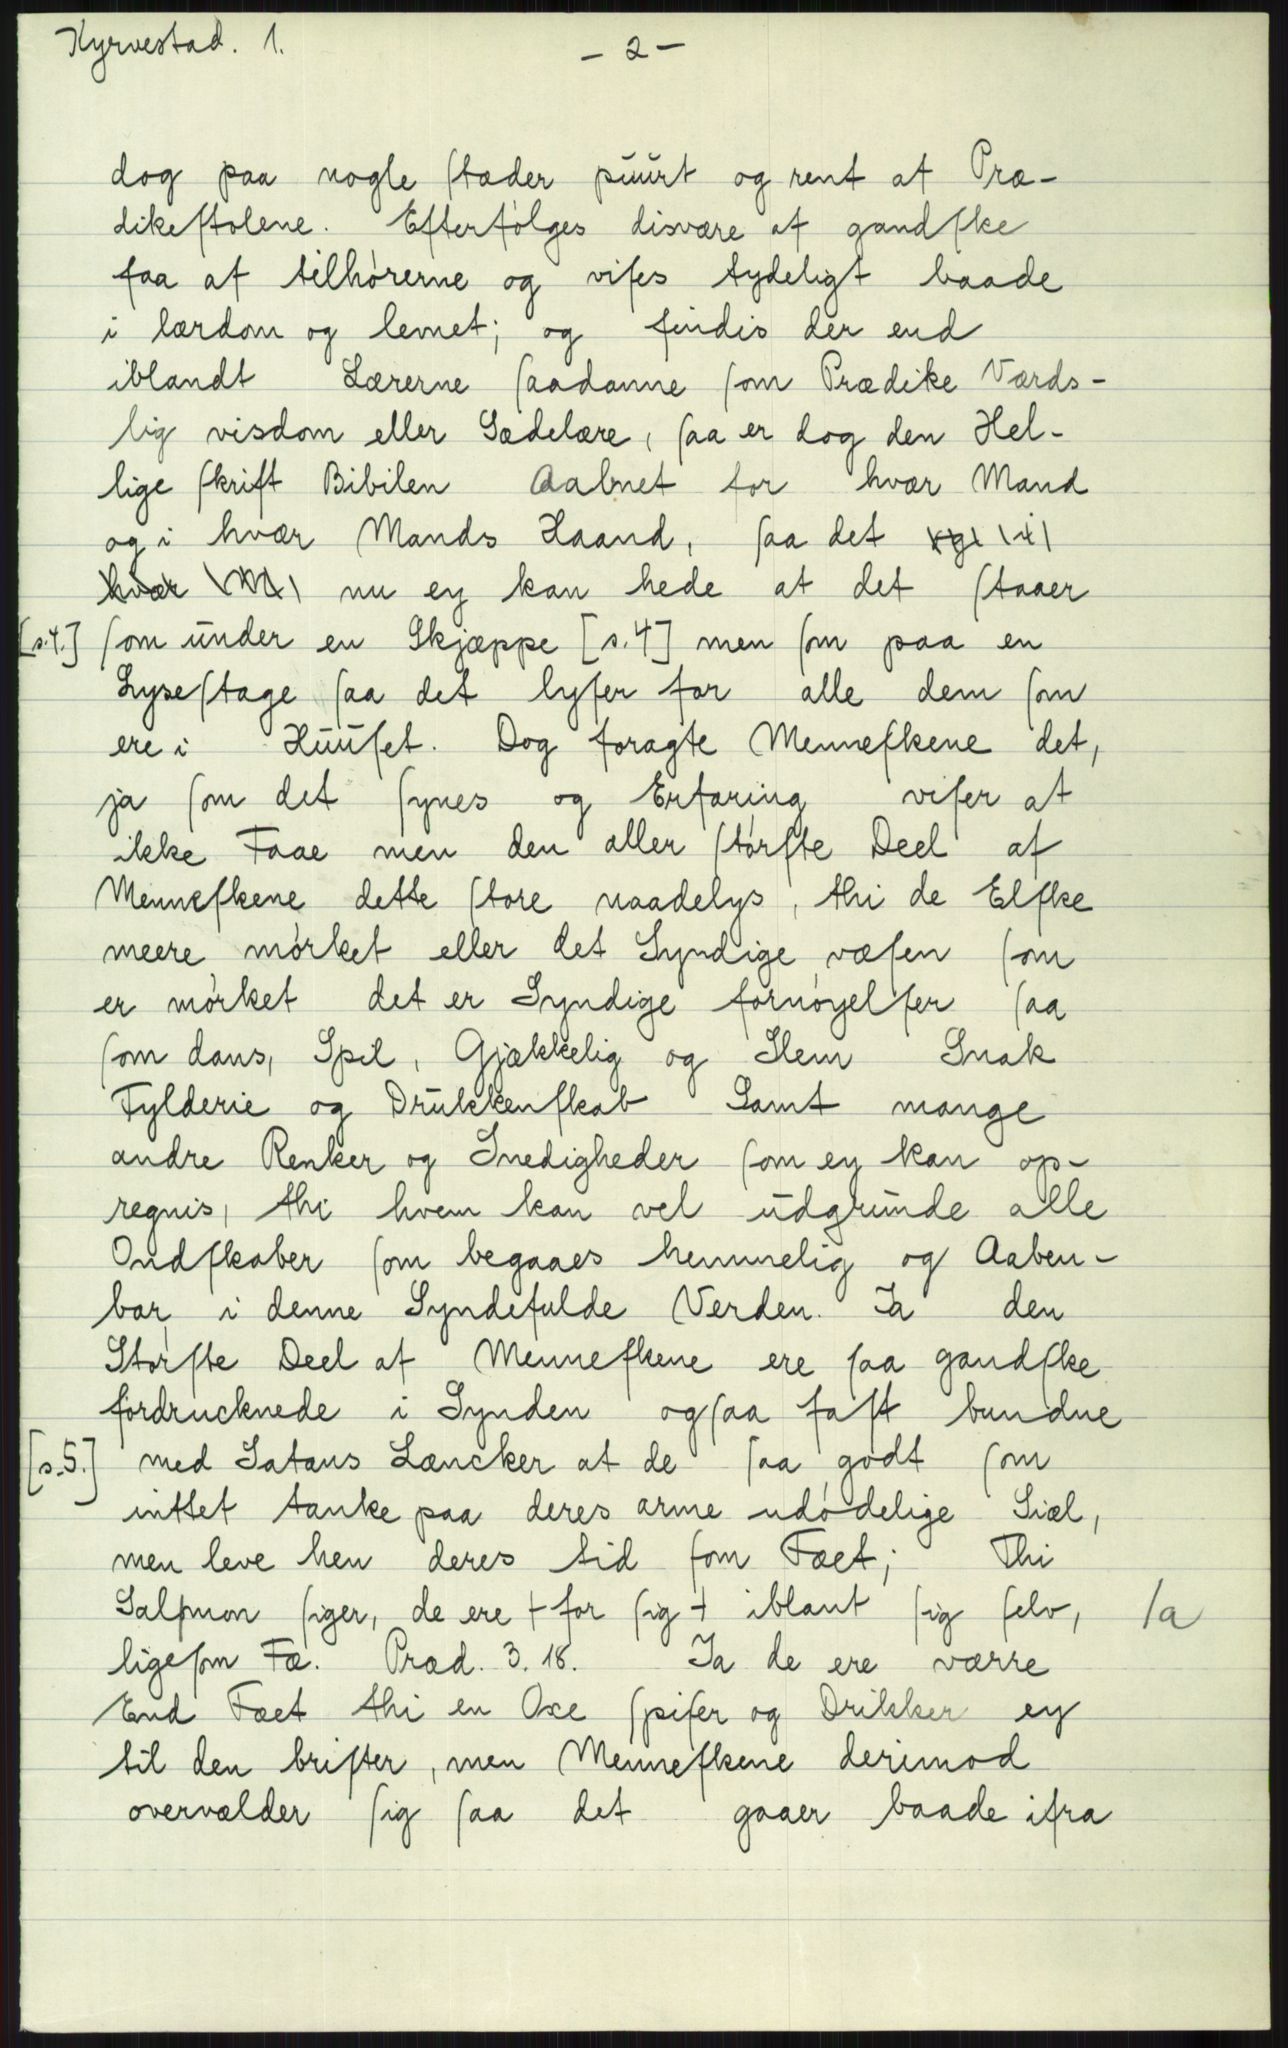 Kyrvestad. 1.
- 2 -
dog paa nogle ſtæder puurt og rent af Præ-
dikeſtolene. Efterfølges disvære af gandſke
faa af tilhørerne og viſes tydeligt baade
i lærdom og levnet; og findis der end
iblandt Lærerne ſaadanne ſom Prædike Værds-
lig visdom eller Sædelære, ſaa er dog den Hel-
lige ſkrift Bibilen Aabnet for hvær Mand
og i hvær Mands Haand, ſaa det og i
hvær M nu ey kan hede at det ſtaaer
[s.4.] ſom under en Skjæppe [s.4] men ſom paa en
Lyseſtage ſaa det lyſer for alle dem ſom
ere i Huuſet. Dog foragte Menneſkene det,
ja ſom det ſynes og Erfaring viſer at
ikke Faae men den aller ſtørſte Deel af
Menneſkene dette ſtore naadelys, thi de Elſke
meere mørket eller det Syndige væſen ſom
er mørket det er Syndige fornøyelſer ſaa
ſom dans, Spil, Gjækkelig og Slem Snak
Fylderie og Drukkenſkab Samt mange
andre Renker og Snedigheder ſom ey kan op-
regnis, thi hvem kan vel udgrunde alle
Ondſkaber ſom begaaes hemmelig og Aaben-
bar i denne Syndefulde Verden. Ja den
Størſte Deel af Menneſkene ere ſaa gandſke
fordrucknede i Synden ogſaa faſt bundne
[s.5.] med Satans Læncker at de ſaa godt ſom
inttet tanke paa deres arme udødelige Siæl,
men leve hen deres tid ſom Fæet; Thi
Salomon ſiger, de ere + for ſig + iblant ſig ſelv, /a
ligeſom Fæ. Præd. 3. 18. Ja de ere værre
End Fæet thi en Oxe ſpiſer og Drikker ey
til den briſter, men Menneſkene derimod
overvælder ſig ſaa det gaaer baade ifra